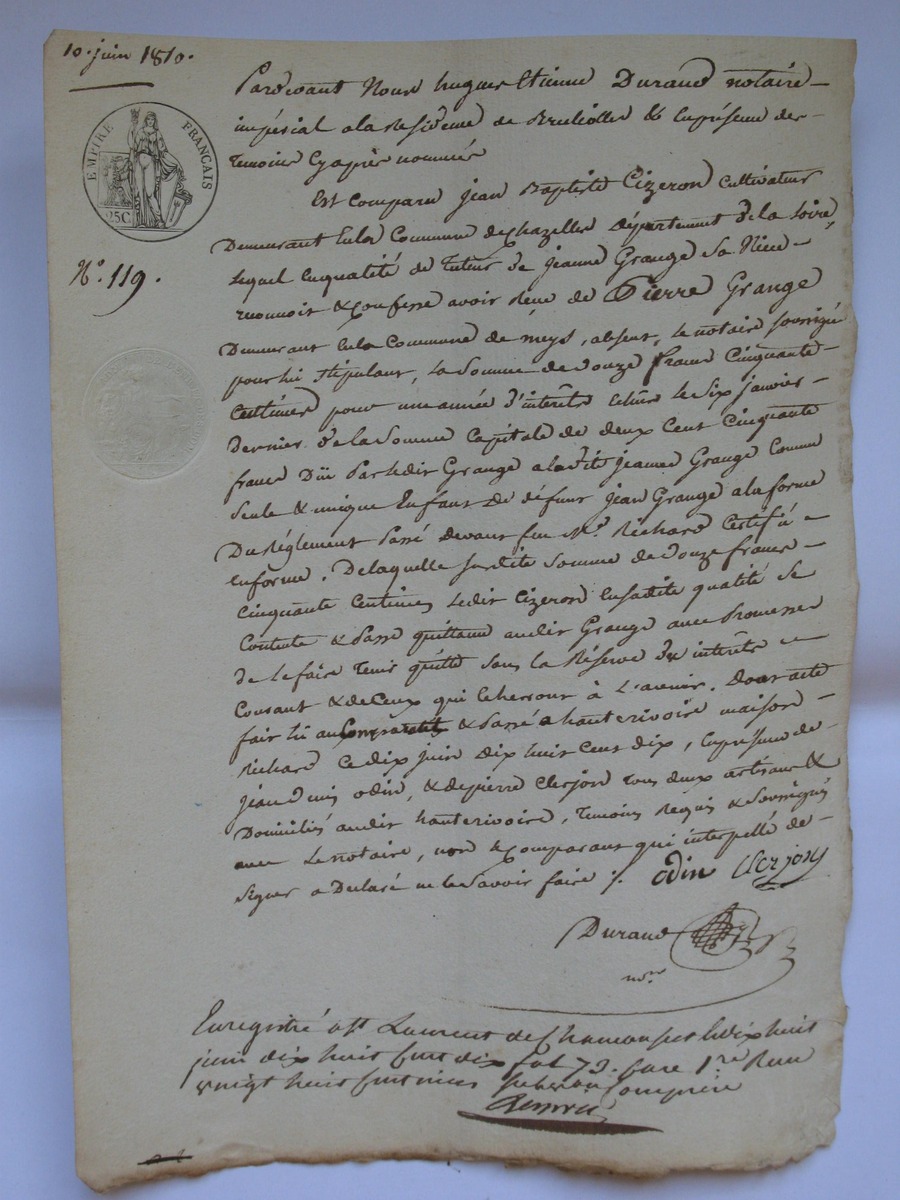 10. juin 1810.
EMPIRE FRANÇAIS
25C
N.o 119.
Pardevant Nous hugues Etienne Durand notaire
impérial a la Residence de Brullioles & en presence des
temoins cy après nommés
Est comparu jean Baptiste Cizeron cultivateur
Demeurant en la Commune de chazelles département de la Loire,
lequel en qualité de tuteur de jeanne Grange sa Niece
reconnoit & confesse avoir Recu de Pierre Grange
Demeurant en la Commune de meys, absent, le notaire soussigné
pour lui stipulant, la somme de douze francs cinquante
centimes pour une année d'interêts échus le six janvier
dernier de la somme capitale de deux cent cinquante
francs Dûe par ledit Grange a ladite jeanne Grange comme
seule & unique Enfant de défunt jean Grange a la forme
du Réglement passé devant feu M.e Richard
en forme. De laquelle susdite somme de douze francs
cinquante centimes ledit Cizeron en sadite qualité se
contente & passe quittance audit Grange avec promesse
de le faire tenir quitte sous la Réserve des interêts
courant & de ceux qui écherront à L'avenir. Dont acte
fait lû au comparant & passé a hauterivoire maison
Richard ce dix juin dix huit cent dix, en presence de
jean odin, & de pierre clerjon tous deux artisans &
Domiciliés audit hauterivoire, temoins Requis & soussignés
avec le notaire, non le comparant qui interpellé de
signer a Declaré ne le savoir faire ./. odin clerjon
Durand
no.re
Enregistré a St Laurent de Chamousset le dix huit
juin dix huit cent dix fol 73. case 1.re Recu
vingt huit centimes subvention Comprise